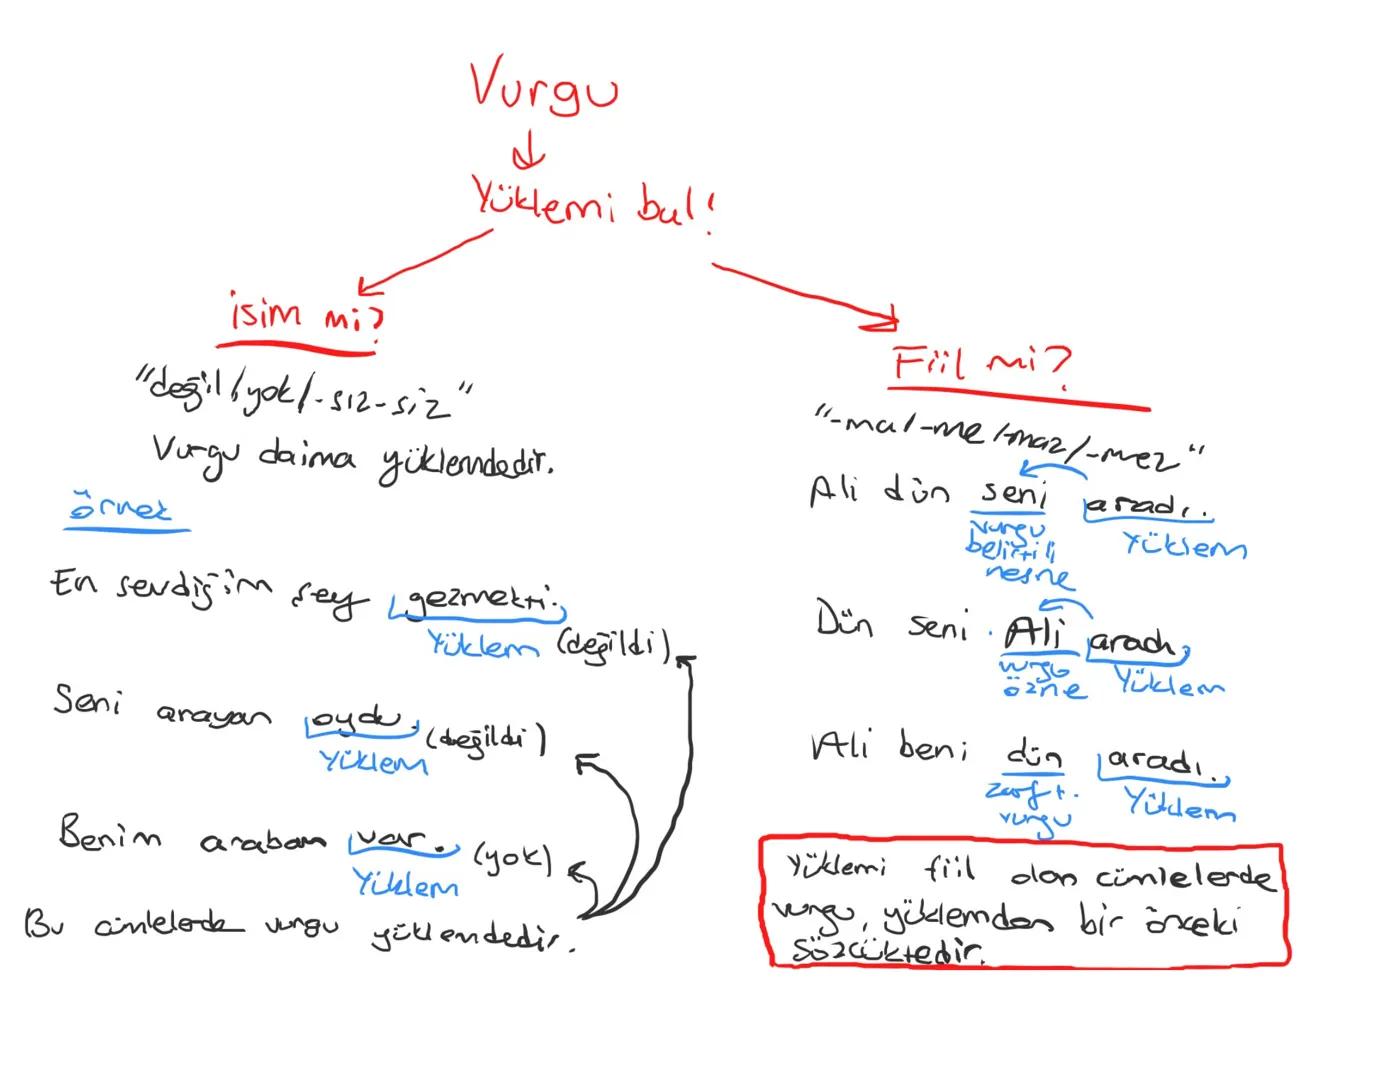 Vurgu
Yüklemi bul!
isim mi?
"değil/yok/-sız-siz"
Vurgu daima yüklemdedir.
örnek
En sevdiğim şey gezmekti.
Yüklem (değildi)
Seni arayan oydu. (değildi)
Yüklem
Benim arabam var. (yok)
Yüklem
Bu cümlelerde vurgu yüklemdedir.
Fiil mi?
"-ma/-me/-maz/-mez"
Ali dün seni aradı.
vurgu
belirtili
nesne
Yüklem
Dün seni Ali aradı.
vurgu
özne
Yüklem
Ali beni dün aradı.
zarf t.
vurgu
Yüklem
Yüklemi fiil olan cümlelerde
vurgu, yüklemden bir önceki
sözcüktedir.